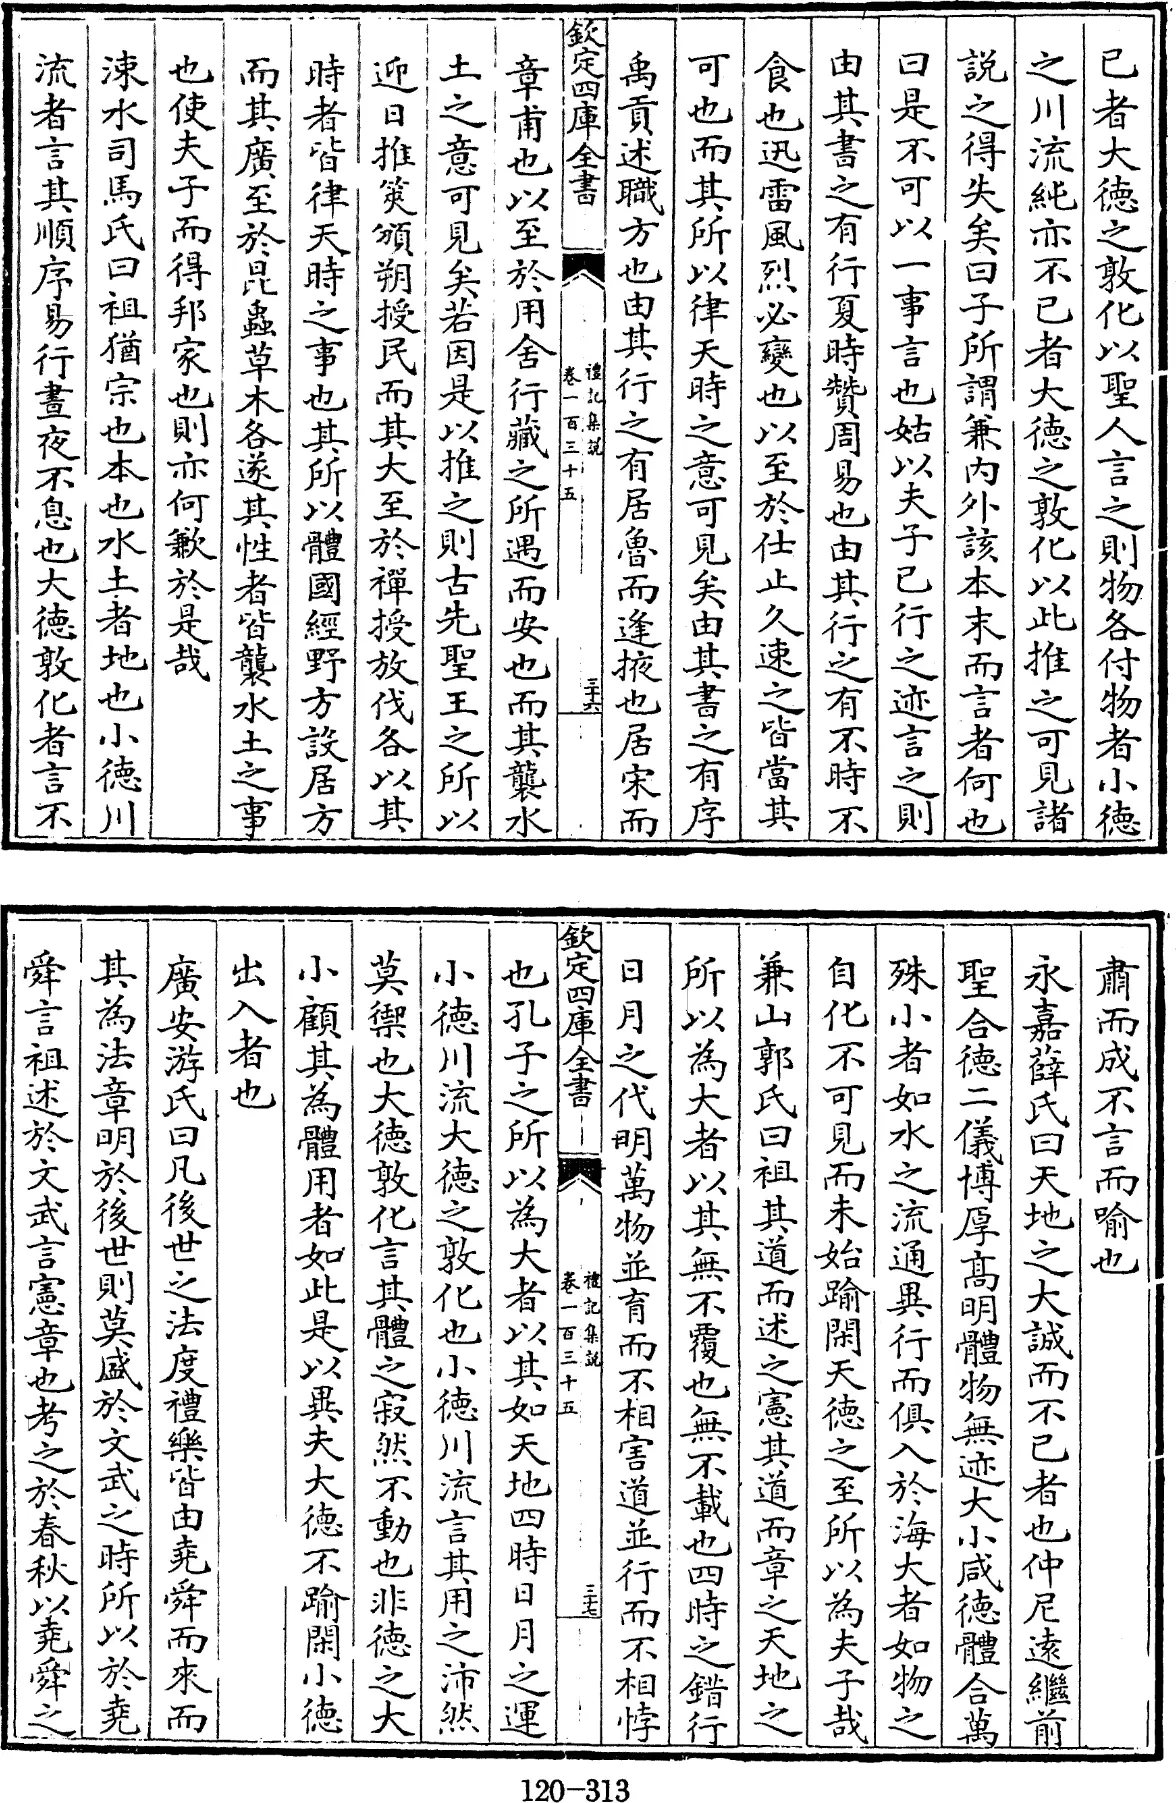 已者大徳之敦化以聖人言之則物各付物者小徳
之川流純亦不已者大徳之敦化以此推之可見諸
説之得失矣曰子所謂兼内外該本末而言者何也
曰是不可以一事言也姑以夫子已行之迹言之則
由其書之有行夏時贊周易也由其行之有不時不
食也迅雷風烈必變也以至於仕止久速之皆當其
可也而其所以律天時之意可見矣由其書之有序
禹貢述職方也由其行之有居魯而逢掖也居宋而
欽定四庫全書
禮記集説
卷一百三十五
三十六
章甫也以至於用舍行藏之所遇而安也而其襲水
土之意可見矣若因是以推之則古先聖王之所以
迎日推筴頒朔授民而其大至於禪授放伐各以其
時者皆律天時之事也其所以體國經野方設居方
而其廣至於昆蟲草木各遂其性者皆襲水土之事
也使夫子而得邦家也則亦何歉於是哉
涑水司馬氏曰祖猶宗也本也水土者地也小徳川
流者言其順序易行晝夜不息也大徳敦化者言不
肅而成不言而喻也
永嘉薛氏曰天地之大誠而不已者也仲尼遠繼前
聖合徳二儀博厚髙明體物無迹大小咸徳體合萬
殊小者如水之流通異行而俱入於海大者如物之
自化不可見而未始踰閑天徳之至所以為夫子哉
兼山郭氏曰祖其道而述之憲其道而章之天地之
所以為大者以其無不覆也無不載也四時之錯行
日月之代明萬物並育而不相害道並行而不相悖
欽定四庫全書
禮記集説
卷一百三十五
三十七
也孔子之所以為大者以其如天地四時日月之運
小徳川流大徳之敦化也小徳川流言其用之沛然
莫禦也大徳敦化言其體之寂然不動也非徳之大
小顧其為體用者如此是以異夫大徳不踰閑小徳
出入者也
廣安游氏曰凡後世之法度禮樂皆由堯舜而來而
其為法章明於後世則莫盛於文武之時所以於堯
舜言祖述於文武言憲章也考之於春秋以堯舜之
120-313